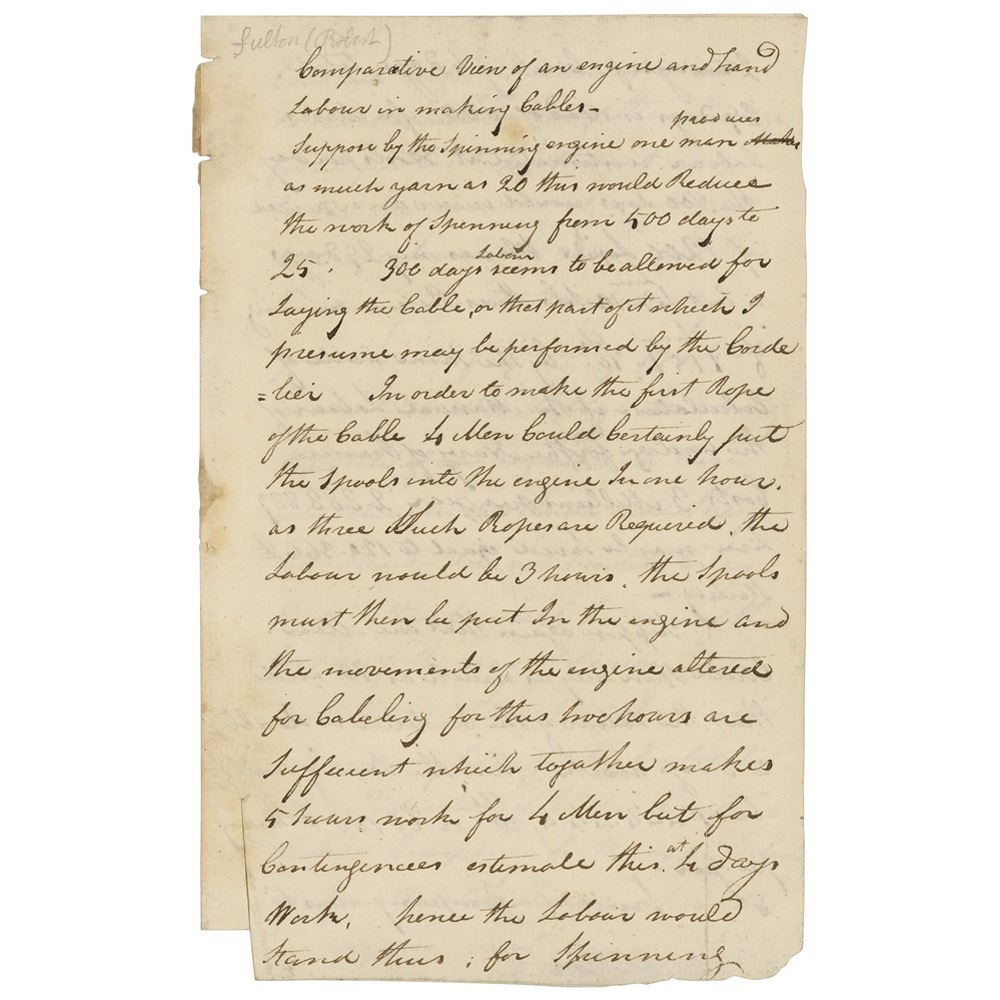 Fulton (Robert)
Comparative View of an engine and hand
Labour in making Cables –
produces
Suppose by the Spinning engine one man Makes
as much yarn as 20 this would Reduce
the work of Spinning from 500 days to
25 . 300 days Labour seems to be allowed for
Laying the Cable, or that part of it which I
presume may be performed by the Corde
=lier In order to make the first Rope
of the Cable 4 Men Could Certainly put
the Spools into the engine In one hour.
as three Such Ropes are Required, the
Labour would be 3 hours. the Spools
must then be put In the engine and
the movements of the engine altered
for Cabeling for this two hours are
Sufficient which together makes
5 hours work for 4 Men but for
Contingencees estemate this at 4 days
Work, hence the Labour would
Stand thus ; for Spinning